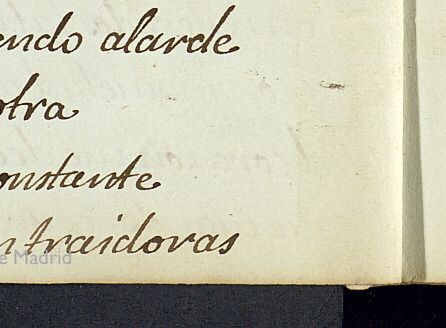 endo alarde
otra
onstante
n traidoras
e Madrid